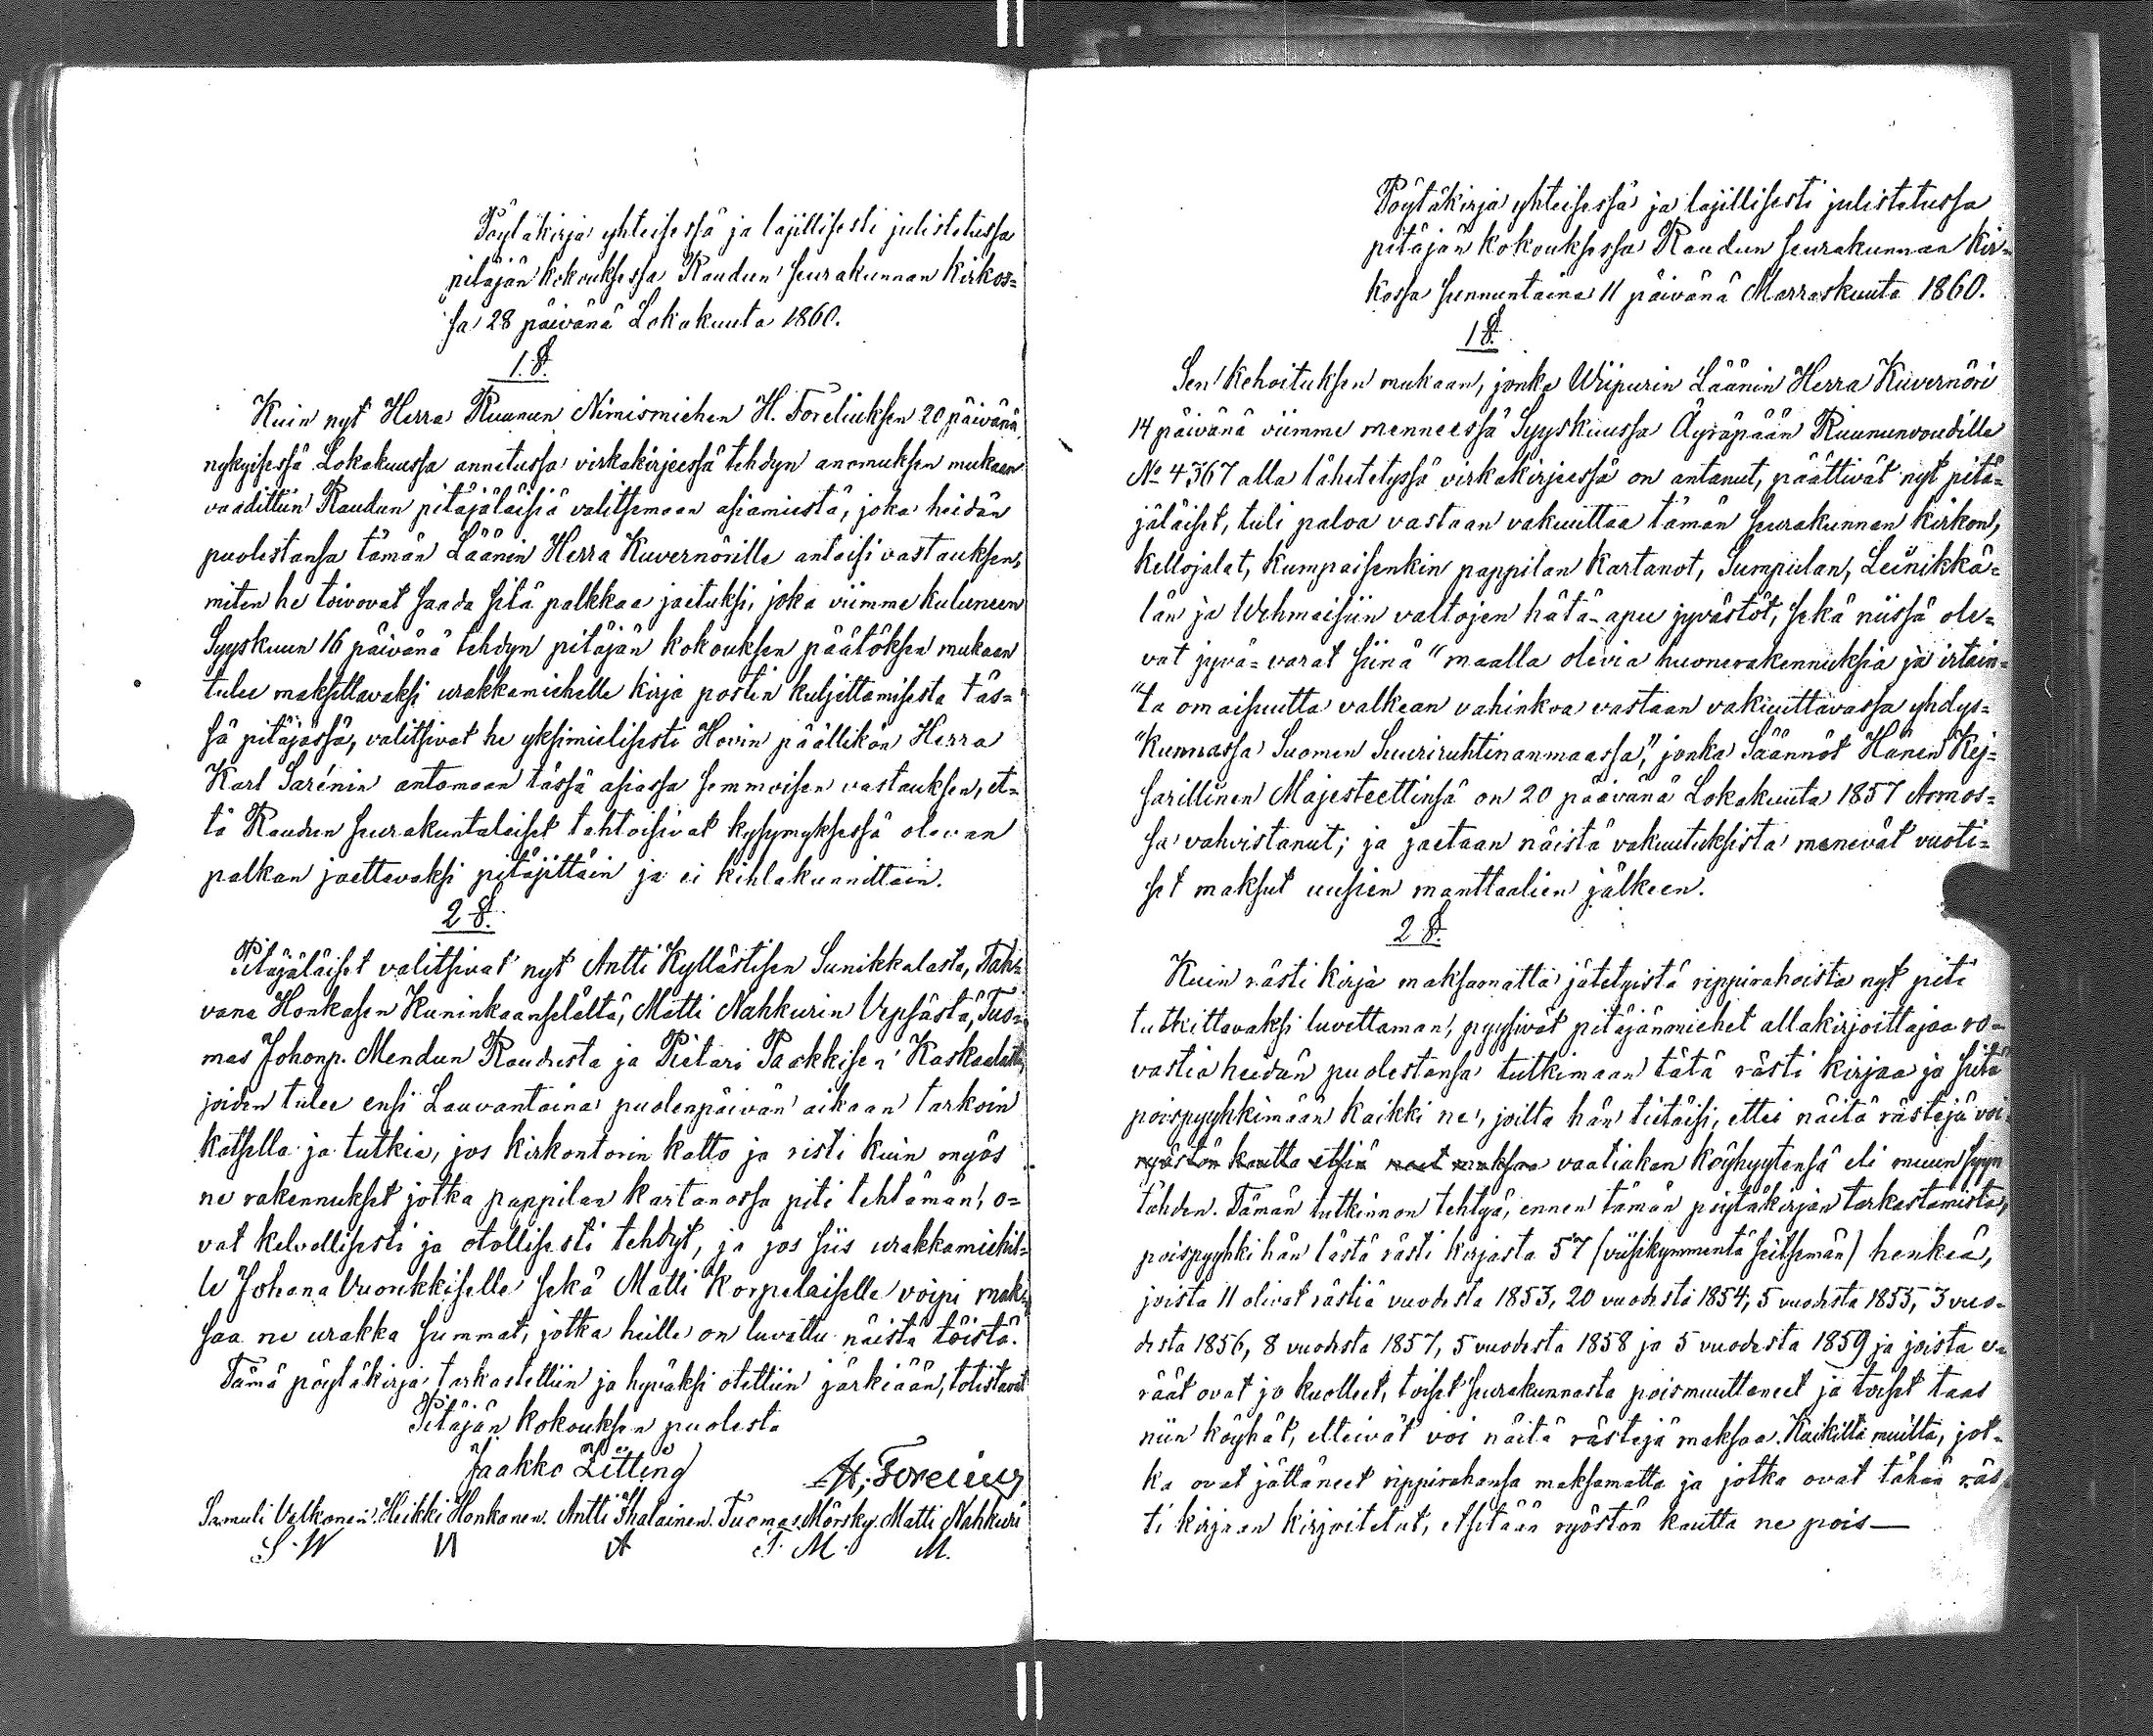 Pöytäkirja yhteisessä ja lajillisesti julistetussa
pitäjän kokouksessa Raudun seurakunnan kirkos=
sa 28 päivänä Lokakuuta 1860.
1.§.
Kuin nyt Herra Ruunun Nimismiehen H. Foreliuksen 20 päivänä
nykyisessä Lokakuussa annetussa virkakirjeessä tehdyn anomuksen mukaan
vaadittiin Raudun pitäjäläisiä valitsemaan asiamiestä, joka heidän
puolestansa tämän Läänin Herra Kuvernörille antaisi vastauksen,
miten he toivovat saada sitä palkkaa jaetuksi, joka viimme kuluneen
Syyskuun 16 päivänä tehdyn pitäjän kokouksen päätöksen mukaan
tulee maksettavaksi urakkamiehelle kirja postin kuljettamisesta täs=
sä pitäjässä, valitsivat he yksimielisesti Hovin päällikön Herra
Karl Sarénin antamaan tässä asiassa semmoisen vastauksen, et=
tä Raudun seurakuntalaiset tahtoisivat kysymyksessä olevan
palkan jaettavaksi pitäjittäin ja ei kihlakunnittain.
2 §.
Pitäjäläiset valitsivat nyt Antti Kyllästisen Sunikkalasta, Tah=
vana Honkasen Kuninkaanselältä, Matti Nahkurin Vepsästä, Tuo=
mas Johonp. Mendun Raudusta ja Pietari Paakkisen Kaskaalasta,
joiden tulee ensi Lauvantaina puolenpäivän aikaan tarkoin
katsella ja tutkia, jos kirkontorin katto ja risti kuin myös
ne rakennukset jotka pappilan kartanossa piti tehtämän, o=
vat kelvollisesti ja otollisesti tehdyt, ja jos siis urakkamiehil=
le Johana Vuonkkiselle sekä Matti Korpelaiselle voipi mak=
saa ne urakka summat, jotka heille on luvattu näistä töistä.
Tämä pöytäkirja tarkastettiin ja hyväksi otettiin järkiään, totistavat
Pitäjän kokouksen puolesta
Jaakko Litting
H. Forelius
Samuli Valkonen. Heikki Honkanen. Antti Ihalainen. Tuomas Mörsky. Matti Nahkuri
S. W H A T. M. M.
Pöytäkirja yhteisessä ja lajillisesti julistetussa
pitäjän kokouksessa Raudun seurakunnan kir=
kossa sunnuntaina 11 päivänä Marraskuuta 1860.
1 §.
Sen kehoituksen mukaan, jonka Wiipurin Läänin Herra Kuvernöri
14 päivänä viimme menneessä Syyskuussa Äyräpään Ruununvoudille
No 4367 alla lähetetyssä virkakirjeessä on antanut, päättivät nyt pitä=
jäläiset, tuli paloa vastaan vakuuttaa tämän seurakunnan kirkon,
kellojalat, kumpaisenkin pappilan kartanot, Sumpulan, Leinikkä=
län ja Wehmaisiin valtojen hätä-apu jyvästöt, sekä niissä ole=
vat jyvä=varat siinä "maalla olevia huonerakennuksia ja irtain=
"ta omaisuutta valkean vahinkoa vastaan vakuuttavassa yhdys=
"kunnassa Suomen Suuriruhtinanmaassa," jonka Säännöt Hänen Kej=
sarillinen Majesteettinsä on 20 päivänä Lokakuuta 1857 Armos=
sa vahvistanut; ja jaetaan näistä vakuutuksista menevät vuoti=
set maksut uusien manttaalien jälkeen.
2 §.
Kuin rästi kirja maksamatta jätetyistä rippirahoista nyt piti
tutkittavaksi luvettaman, pyysivät pitäjänmiehet allakirjoittajaa ro=
vastia heidän puolestansa tutkimaan tätä rästi kirjaa ja siitä
poispyyhkimään kaikki ne, joilta hän tietäisi, ettei näitä rästejä voi
ryöstön kautta etsiä maksaa vaatiakan köyhyytensä eli muun syyn
tähden. Tämän tutkinnon tehtyä, ennen tämän pöytäkirjan tarkastamista,
poispyyhki hän tästä rästi kirjasta 57 (viisikymmentä seitsemän) henkeä,
joista 11 olivat rästiä vuodesta 1853, 20 vuodesta 1854, 5 vuodesta 1855, 3 vuo=
desta 1856, 8 vuodesta 1857, 5 vuodesta 1858 ja 5 vuodesta 1859 ja joista e=
räät ovat jo kuolleet, toiset seurakunnasta poismuuttaneet ja toiset taas
niin köyhät, etteivät voi näitä rästejä maksaa. Kaikilta muilta, jot=
ka ovat jättäneet rippirahansa maksamatta ja jotka ovat tähän räs=
ti kirjaan kirjoitetut, etsitään ryöstön kautta ne pois—